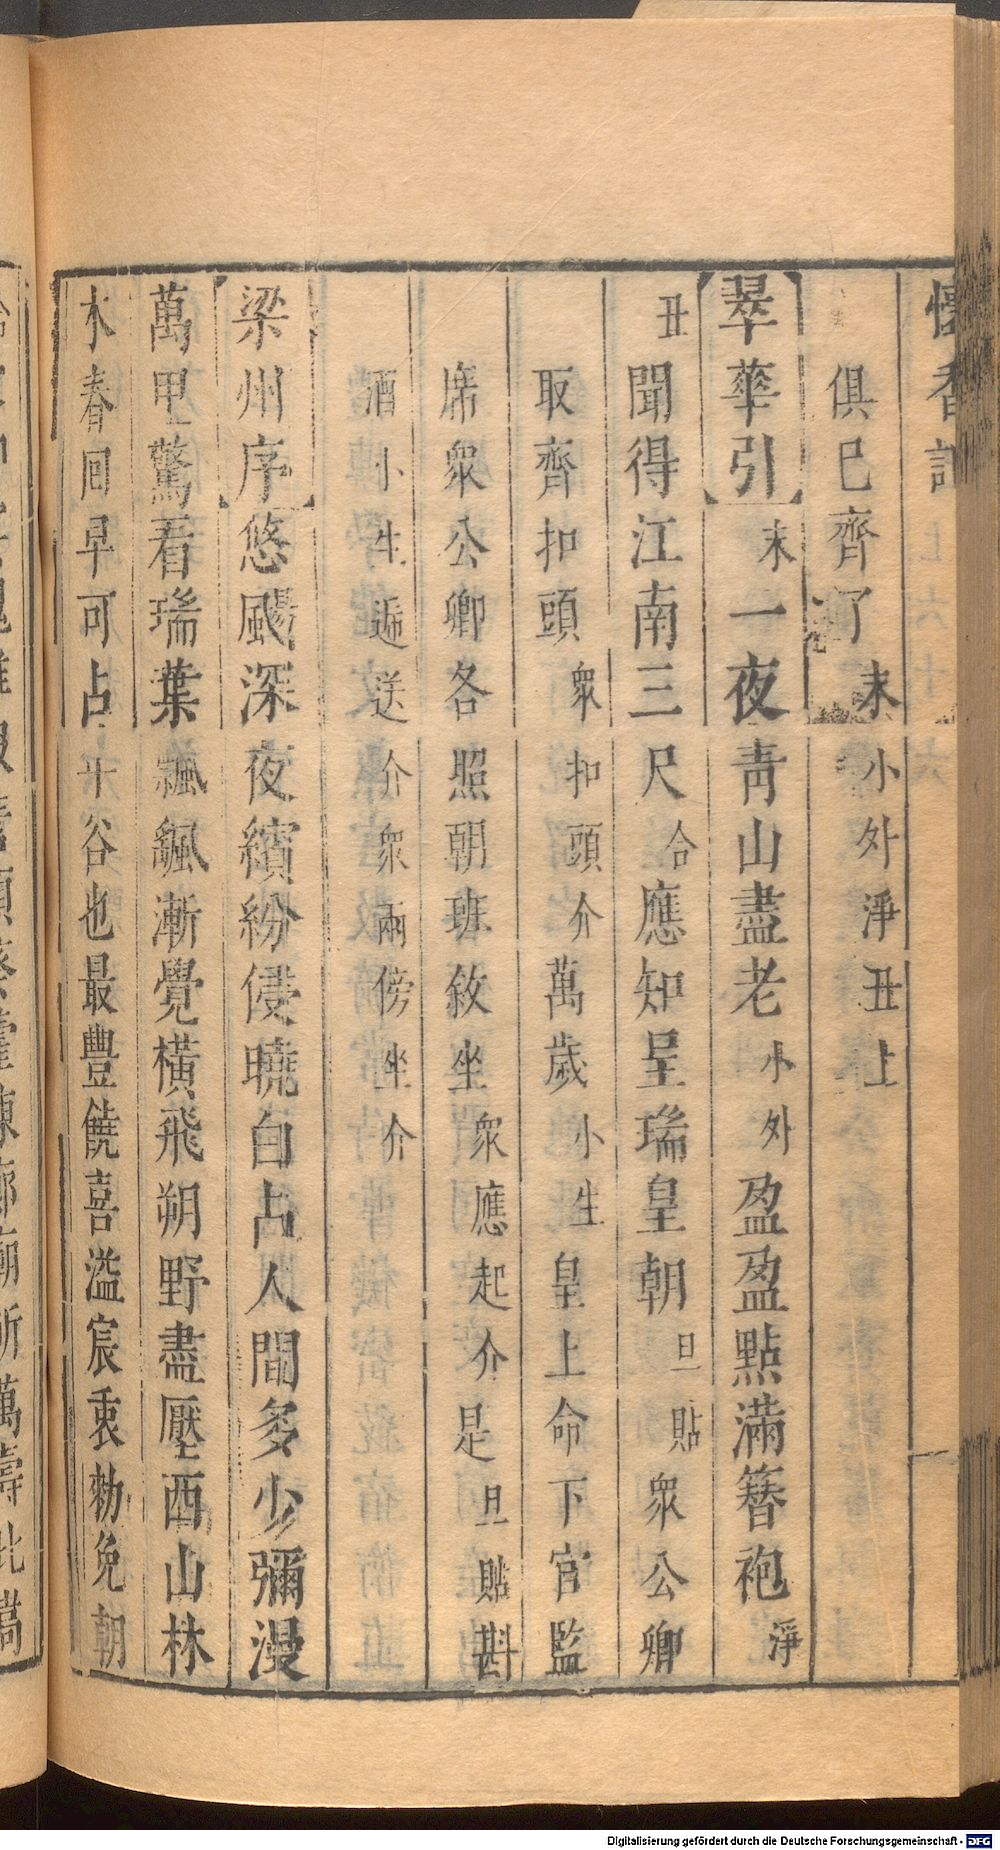 懷香記
俱巳齊了末小外淨丑上
翠華引末一夜青山盡老小外盈盈點滿簪袍淨
丑聞得江南三尺合應知呈瑞皇朝旦貼眾公卿
取齊扣頭眾扣頭介萬歲小生皇上命下官監
席眾公卿各照朝班敘坐眾應起介是旦貼斟
酒小生遞送介眾兩傍坐介
梁州序悠颺深夜繽紛侵曉白占人間多少彌漫
萬甲驚看瑞葉飄颻漸覺橫飛朔野盡壓西山林
木春囘早可占十谷也最豐饒喜溢宸衷勑免朝
Digitalisierung gefördert durch die Deutsche Forschungsgemeinschaft - DFG